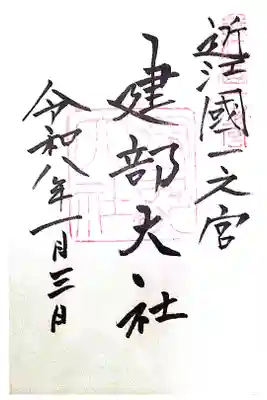 近江國一之宮
建部大社
令和八年一月三日